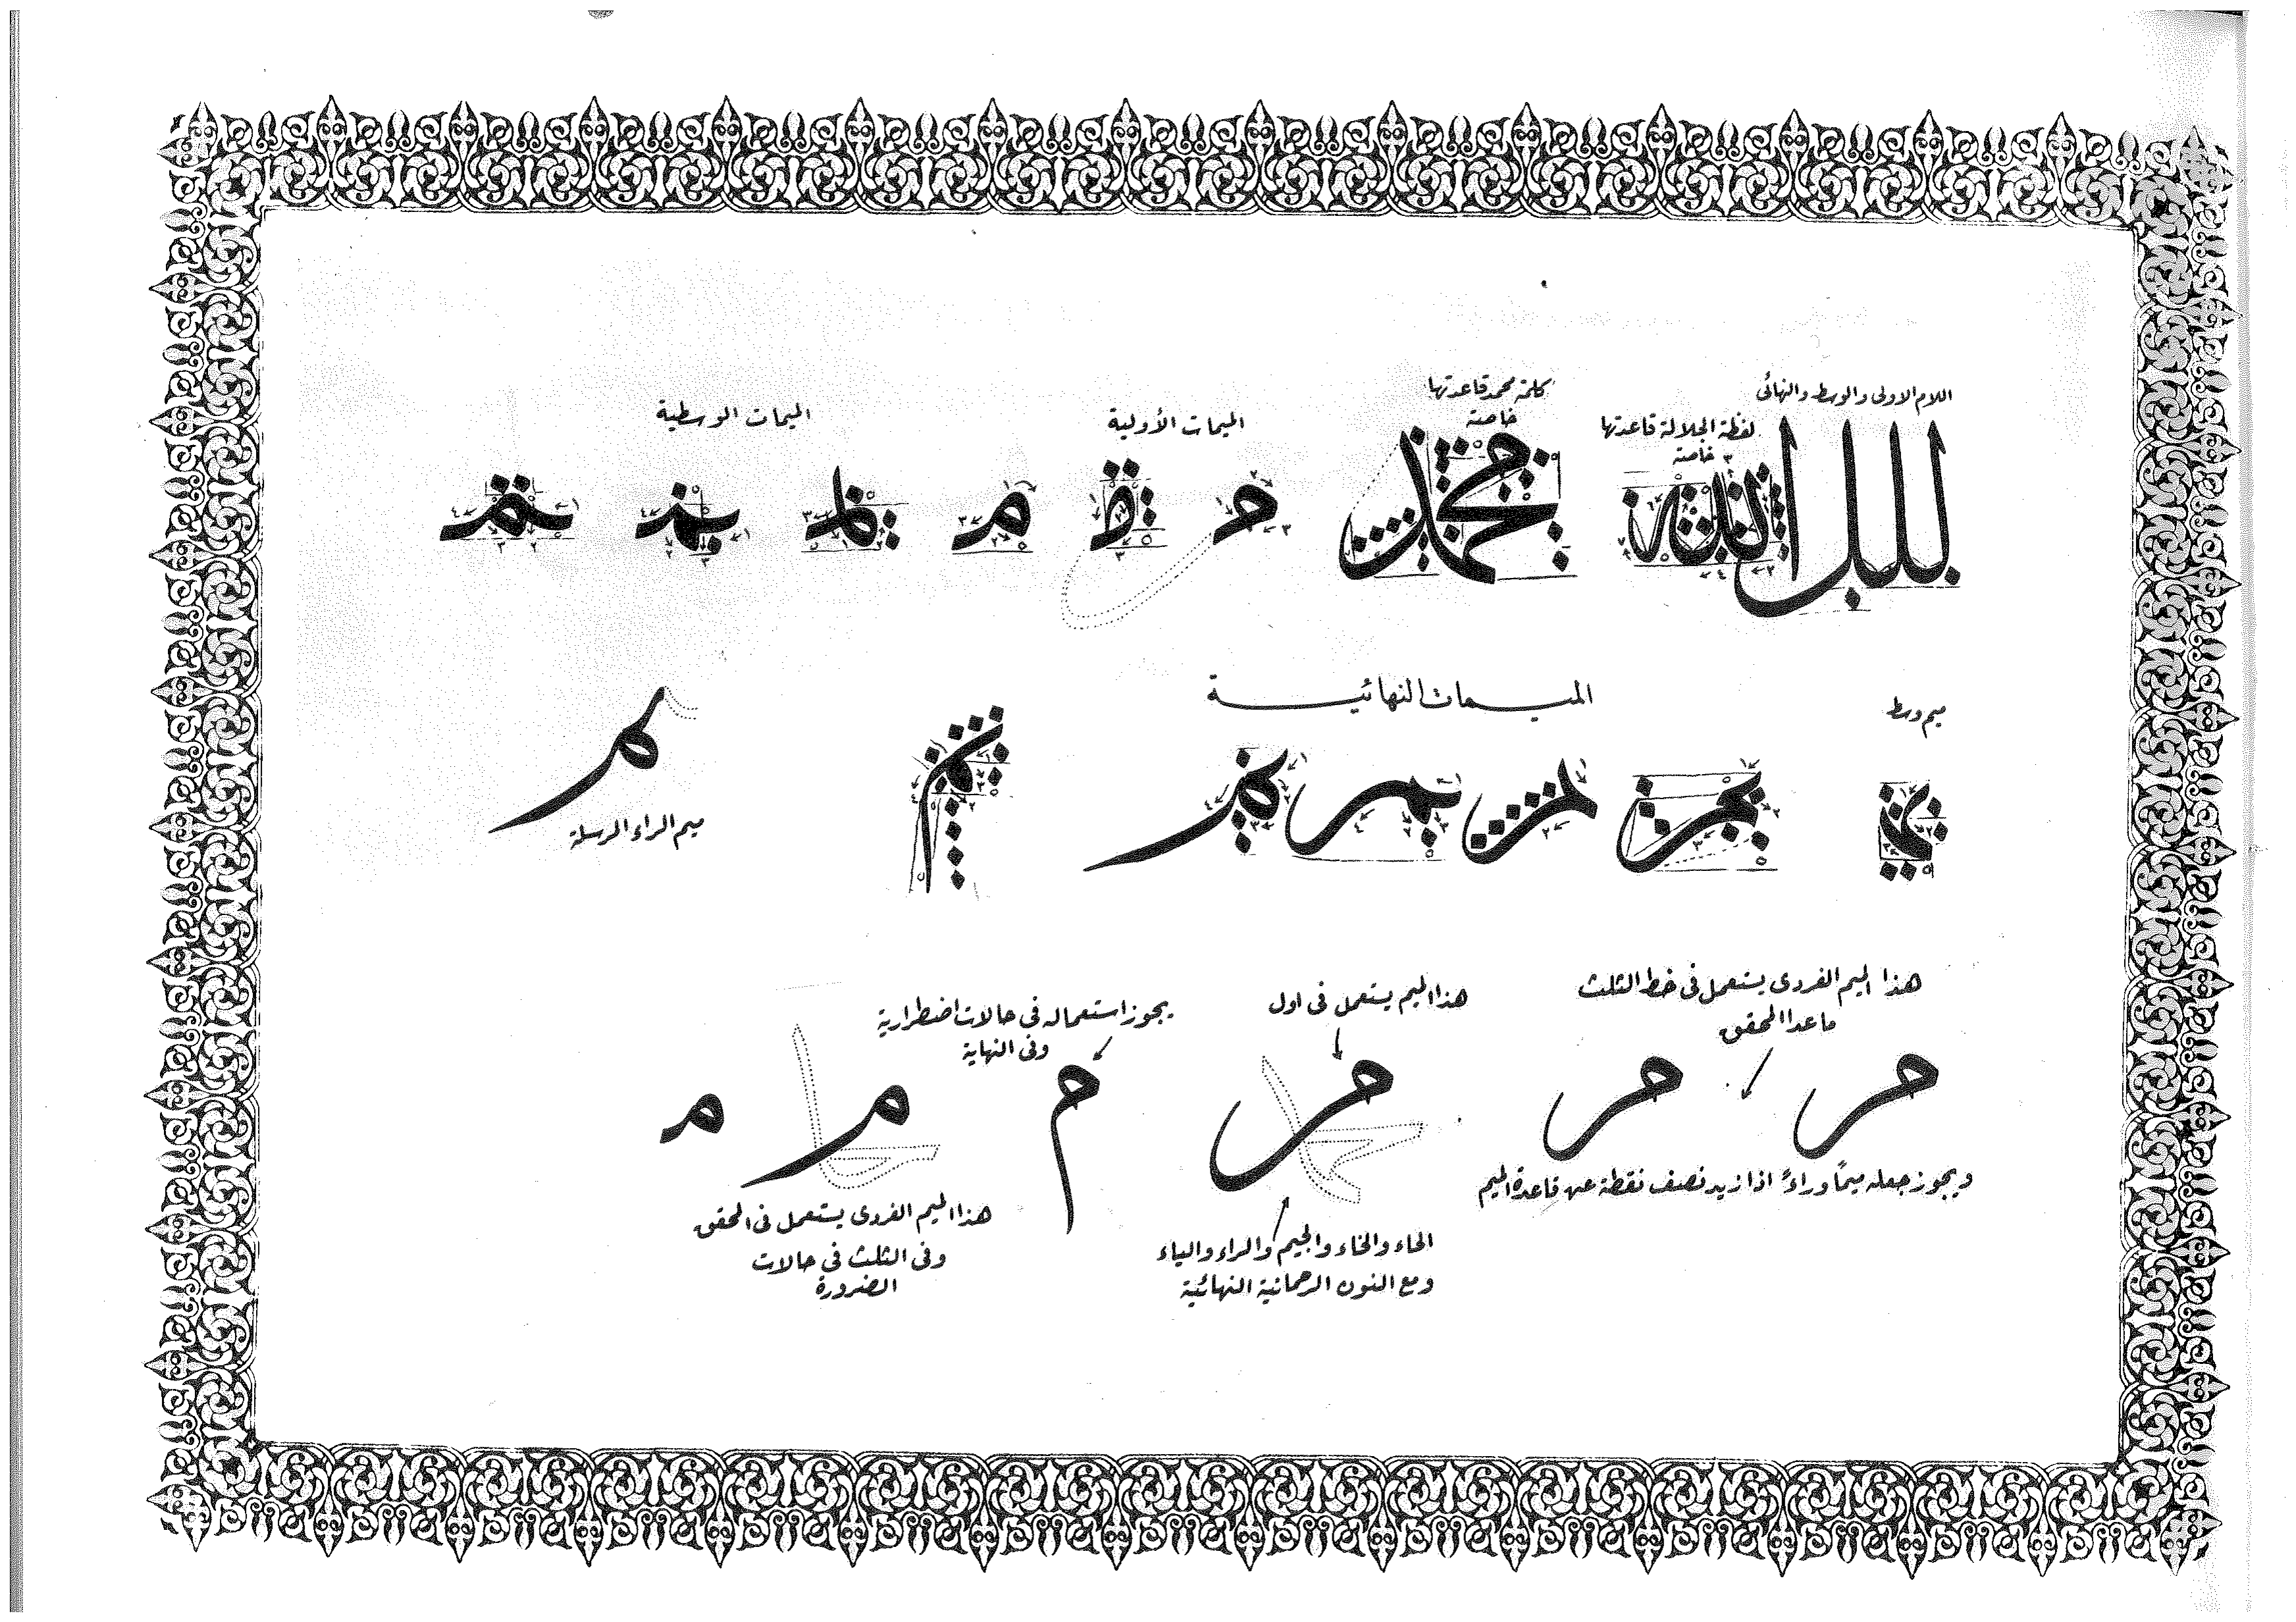 اللام الاولى والوسط والنهائى
لفظة الجلالة قاعدتها
خاصة
كلمة محمد قاعدتها
خاصة
الميمات الأولية
الميمات الوسطية
للل
الله
محمد
ميم وسط
الميمات النهائيـة
ميم الراء المرسلة
هذا الميم الفردى يستعمل فى خط الثلث
ما عدا المحقق
ويجوز جعله ميمًا وراءً اذا زيد نصف نقطة عن قاعدة الميم
هذا الميم يستعمل فى اول
الحاء والخاء والجيم والراء والياء
ومع النون الرحمانية النهائية
يجوز استعماله فى حالات اضطرارية
وفى النهاية
م
هذا الميم الفردى يستعمل فى المحقق
وفى الثلث فى حالات
الضرورة